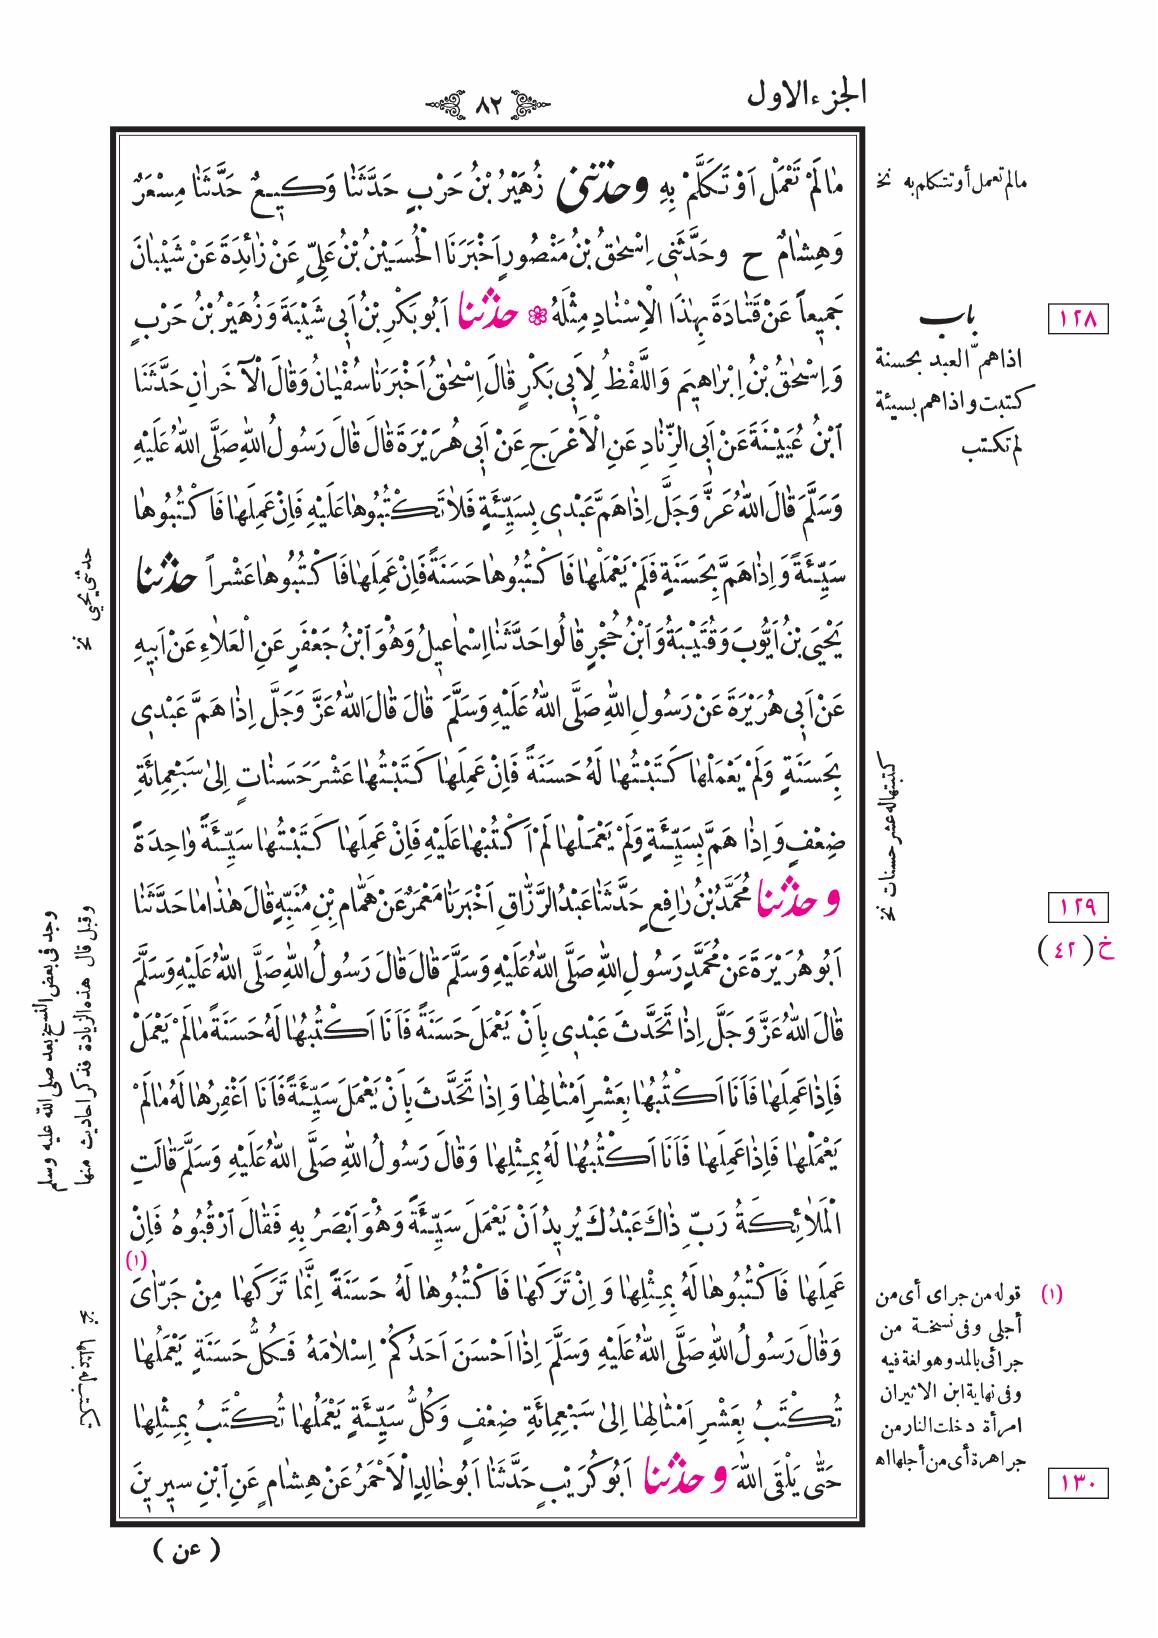 الجزء الاول
٨٢
مٰالَمْ تَعْمَلْ اَوْ تَكَلَّمْ بِهِ وحدثنى زُهَيْرُ بْنُ حَرْبٍ حَدَّثَنٰا وَكِيعٌ حَدَّثَنٰا مِسْعَرٌ
وَهِشٰامٌ ح وحَدَّثَنى اِسْحٰقُ بْنُ مَنْصُورٍ اَخْبَرَنَا الْحُسَيْنُ بْنُ عَلِيٍّ عَنْ زٰائِدَةَ عَنْ شَيْبٰانَ
جَمِيعاً عَنْ قَتٰادَةَ بِهٰذَا الْاِسْنٰادِ مِثْلَهُ حدثنا اَبُو بَكْرِ بْنُ اَبِى شَيْبَةَ وَزُهَيْرُ بْنُ حَرْبٍ
وَاِسْحٰقُ بْنُ اِبْرٰاهِيمَ وَاللَّفْظُ لِاَبِى بَكْرٍ قٰالَ اِسْحٰقُ اَخْبَرَنٰا سُفْيٰانُ وَقٰالَ الْآخَرٰانِ حَدَّثَنَا
ابْنُ عُيَيْنَةَ عَنْ اَبِى الزِّنٰادِ عَنِ الْاَعْرَجِ عَنْ اَبِى هُرَيْرَةَ قٰالَ قٰالَ رَسُولُ اللهِ صَلَّى اللهُ عَلَيْهِ
وَسَلَّمَ قٰالَ اللهُ عَزَّ وَجَلَّ اِذٰا هَمَّ عَبْدِى بِسَيِّئَةٍ فَلٰا تَكْتُبُوهٰا عَلَيْهِ فَاِنْ عَمِلَهٰا فَاكْتُبُوهٰا
سَيِّئَةً وَاِذٰا هَمَّ بِحَسَنَةٍ فَلَمْ يَعْمَلْهٰا فَاكْتُبُوهٰا حَسَنَةً فَاِنْ عَمِلَهٰا فَاكْتُبُوهٰا عَشْراً حدثنا
يَحْيَى بْنُ اَيُّوبَ وَقُتَيْبَةُ وَابْنُ حُجْرٍ قٰالُوا حَدَّثَنٰا اِسْمٰاعِيلُ وَهُوَ ابْنُ جَعْفَرٍ عَنِ الْعَلٰاءِ عَنْ اَبِيهِ
عَنْ اَبِى هُرَيْرَةَ عَنْ رَسُولِ اللهِ صَلَّى اللهُ عَلَيْهِ وَسَلَّمَ قٰالَ قٰالَ اللهُ عَزَّ وَجَلَّ اِذٰا هَمَّ عَبْدِى
بِحَسَنَةٍ وَلَمْ يَعْمَلْهٰا كَتَبْتُهٰا لَهُ حَسَنَةً فَاِنْ عَمِلَهٰا كَتَبْتُهٰا عَشْرَ حَسَنٰاتٍ اِلىٰ سَبْعِمِائَةِ
ضِعْفٍ وَاِذٰا هَمَّ بِسَيِّئَةٍ وَلَمْ يَعْمَلْهٰا لَمْ اَكْتُبْهٰا عَلَيْهِ فَاِنْ عَمِلَهٰا كَتَبْتُهٰا سَيِّئَةً وٰاحِدَةً
وحدثنا مُحَمَّدُ بْنُ رٰافِعٍ حَدَّثَنٰا عَبْدُ الرَّزّٰاقِ اَخْبَرَنٰا مَعْمَرٌ عَنْ هَمّٰامِ بْنِ مُنَبِّهٍ قٰالَ هٰذٰا مٰا حَدَّثَنٰا
اَبُو هُرَيْرَةَ عَنْ مُحَمَّدٍ رَسُولِ اللهِ صَلَّى اللهُ عَلَيْهِ وَسَلَّمَ قٰالَ قٰالَ رَسُولُ اللهِ صَلَّى اللهُ عَلَيْهِ وَسَلَّمَ
قٰالَ اللهُ عَزَّ وَجَلَّ اِذٰا تَحَدَّثَ عَبْدِى بِاَنْ يَعْمَلَ حَسَنَةً فَاَنَا اَكْتُبُهٰا لَهُ حَسَنَةً مٰا لَمْ يَعْمَلْ
فَاِذٰا عَمِلَهٰا فَاَنَا اَكْتُبُهٰا بِعَشْرِ اَمْثٰالِهٰا وَاِذٰا تَحَدَّثَ بِاَنْ يَعْمَلَ سَيِّئَةً فَاَنَا اَغْفِرُهٰا لَهُ مٰا لَمْ
يَعْمَلْهٰا فَاِذٰا عَمِلَهٰا فَاَنَا اَكْتُبُهٰا لَهُ بِمِثْلِهٰا وَقٰالَ رَسُولُ اللهِ صَلَّى اللهُ عَلَيْهِ وَسَلَّمَ قٰالَتِ
الْمَلٰائِكَةُ رَبِّ ذٰاكَ عَبْدُكَ يُرِيدُ اَنْ يَعْمَلَ سَيِّئَةً وَهُوَ اَبْصَرُ بِهِ فَقٰالَ ارْقُبُوهُ فَاِنْ
عَمِلَهٰا فَاكْتُبُوهٰا لَهُ بِمِثْلِهٰا وَاِنْ تَرَكَهٰا فَاكْتُبُوهٰا لَهُ حَسَنَةً اِنَّمٰا تَرَكَهٰا مِنْ جَرّٰاىَ (١)
وَقٰالَ رَسُولُ اللهِ صَلَّى اللهُ عَلَيْهِ وَسَلَّمَ اِذٰا اَحْسَنَ اَحَدُكُمْ اِسْلٰامَهُ فَكُلُّ حَسَنَةٍ يَعْمَلُهٰا
تُكْتَبُ بِعَشْرِ اَمْثٰالِهٰا اِلىٰ سَبْعِمِائَةِ ضِعْفٍ وَكُلُّ سَيِّئَةٍ يَعْمَلُهٰا تُكْتَبُ بِمِثْلِهٰا
حَتّٰى يَلْقَى اللهَ وحدثنا اَبُو كُرَيْبٍ حَدَّثَنٰا اَبُو خٰالِدٍ الْاَحْمَرُ عَنْ هِشٰامٍ عَنِ ابْنِ سِيرِينَ
( عن )
مالم تعمل أو تتكلم به نخ
١٢٨
باب
اذا هم العبد بحسنة
كتبت واذا هم بسيئة
لم تكتب
كتبتها له عشر حسنات نخ
١٢٩
خ (٤٢)
(١) قوله من جراى أى من
أجلى وفى نسخة من
جرائى بالمد وهو لغة فيه
وفى نهاية ابن الاثير ان
امرأة دخلت النار من
جرا هرة أى من أجلها اه
١٣٠
حدثنى يحيى نخ
وجد فى بعض النسخ بعد صلى الله عليه وسلم
وقبل قال هذه الزيادة فذكر احاديث منها